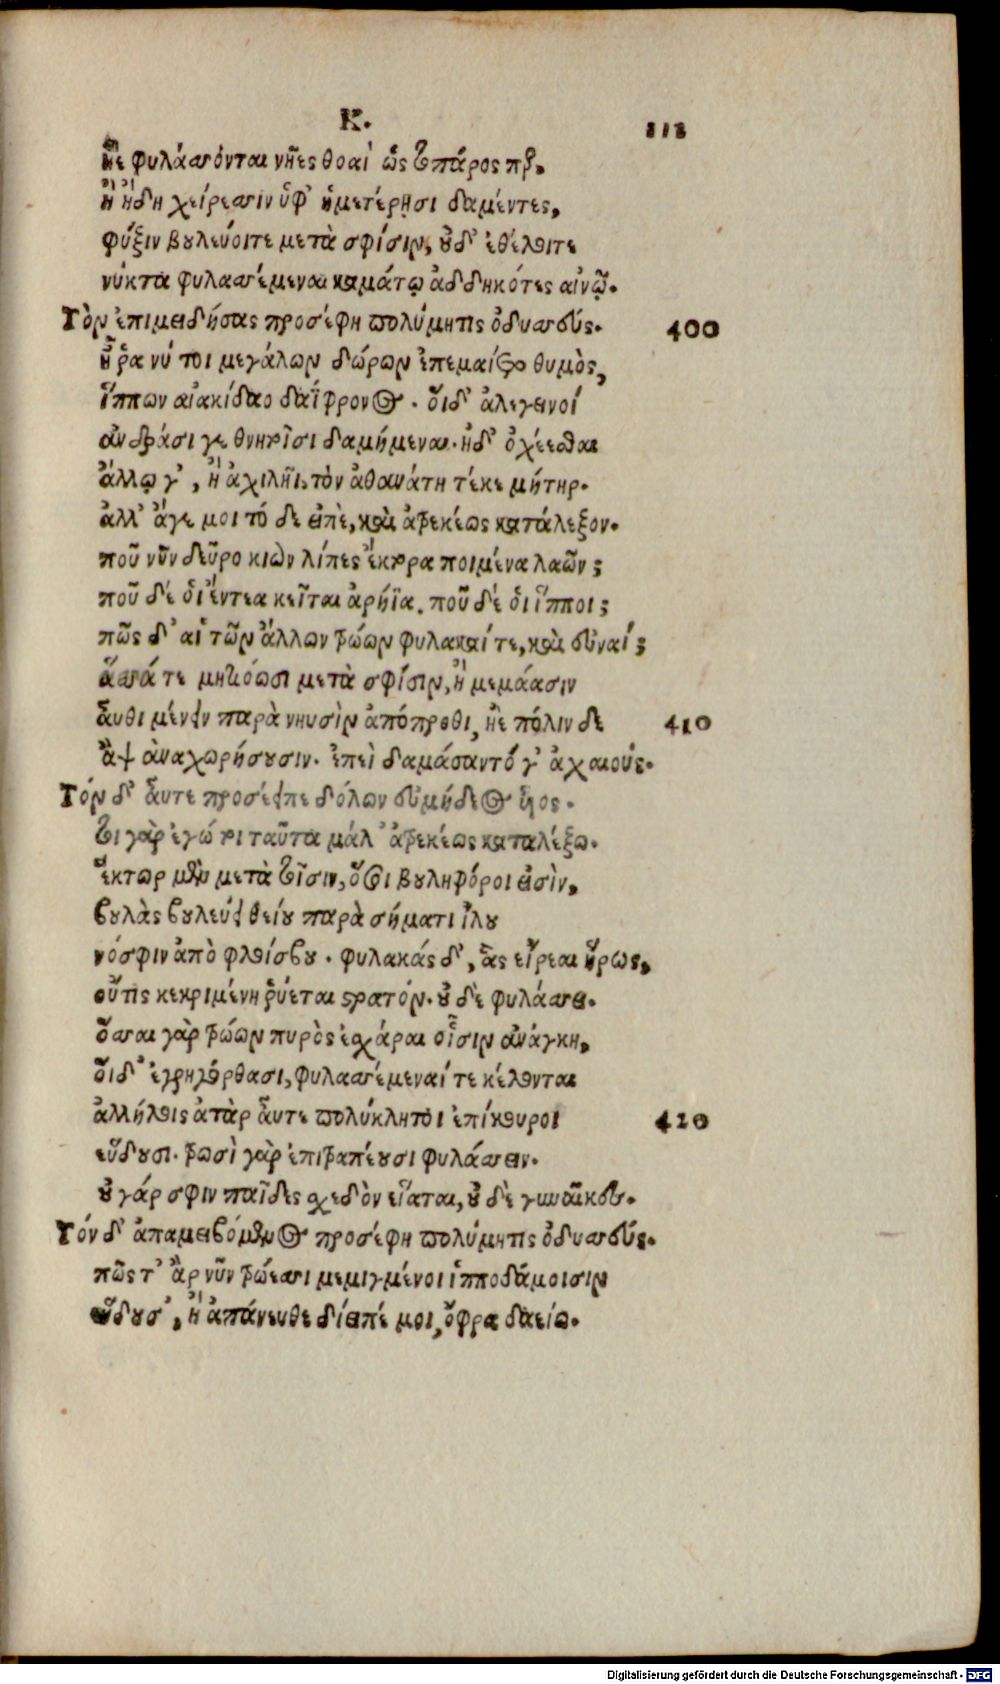 Κ. 112
ἠὲ φυλάσσονται νῆες θοαὶ ὡς τοπάρος περ.
ἢ ἤδη χείρεσσιν ὑφ' ἡμετέρῃσι δαμέντες,
φύξιν βουλεύοιτε μετὰ σφίσιν, οὐδ' ἐθέλοιτε
νύκτα φυλασσέμεναι καμάτῳ ἀδδηκότες αἰνῷ.
Τὸν ἐπιμειδήσας προσέφη πολύμητις ὀδυσσεύς. 400
ἦ ῥα νύ τοι μεγάλων δώρων ἐπεμαίετο θυμὸς,
ἵππων αἰακίδαο δαΐφρονος. οἵδ' ἀλεγεινοί
ἀνδράσι γε θνητοῖσι δαμήμεναι. ἠδ' ὀχέεσθαι
ἄλλῳ γ', ἢ ἀχιλῆϊ, τὸν ἀθανάτη τέκε μήτηρ.
ἀλλ' ἄγε μοι τό δε εἰπὲ, καὶ ἀτρεκέως κατάλεξον.
ποῦ νῦν δεῦρο κιὼν λίπες ἕκτορα ποιμένα λαῶν;
ποῦ δέ οἱ ἔντεα κεῖται ἀρήϊα. ποῦ δέ οἱ ἵπποι;
πῶς δ' αἱ τῶν ἄλλων τρώων φυλακαί τε, καὶ εὐναί;
ἅσσά τε μητιόωσι μετὰ σφίσιν, ἢ μεμάασιν
ἄυθι μένειν παρὰ νηυσὶν ἀπόπροθι, ἠὲ πόλιν δε 410
ἂψ ἀναχωρήσουσιν. ἐπεὶ δαμάσαντό γ' ἀχαιούς.
Τόν δ' ἄυτε προσέειπε δόλων εὐμήδεος ὑιος.
τοι γὰρ ἐγώ τοι ταῦτα μάλ' ἀτρεκέως καταλέξω.
ἕκτωρ μὲν μετὰ τοῖσιν, ὅσοι βουληφόροι εἰσὶν,
βουλὰς βουλεύει θείου παρὰ σήματι ἴλου
νόσφιν ἀπὸ φλοίσβου. φυλακάς δ', ἃς εἴρεαι ἥρως,
οὔτις κεκριμένη ῥύεται στρατόν. οὐδὲ φυλάσσει.
ὅσσαι γὰρ τρώων πυρὸς ἐσχάραι οἷσιν ἀνάγκη,
οἵδ' ἐγρηγόρθασι, φυλασσέμεναί τε κέλονται
ἀλλήλοις ἀτὰρ ἄυτε πολύκλητοι ἐπίκουροι 420
εὕδουσι. τρωσὶ γὰρ ἐπιτραπέουσι φυλάσσειν.
οὐ γάρ σφιν παῖδες σχεδὸν εἵαται, οὐδὲ γυναῖκες.
Τόν δ' ἀπαμειβόμενος προσέφη πολύμητις ὀδυσσεύς.
πῶς τ' ἂρ νῦν τρώεσσι μεμιγμένοι ἱπποδάμοισιν
εὕδουσ', ἢ ἀπάνευθε δίειπέ μοι, ὄφρα δαείω.
Digitalisierung gefördert durch die Deutsche Forschungsgemeinschaft - DFG